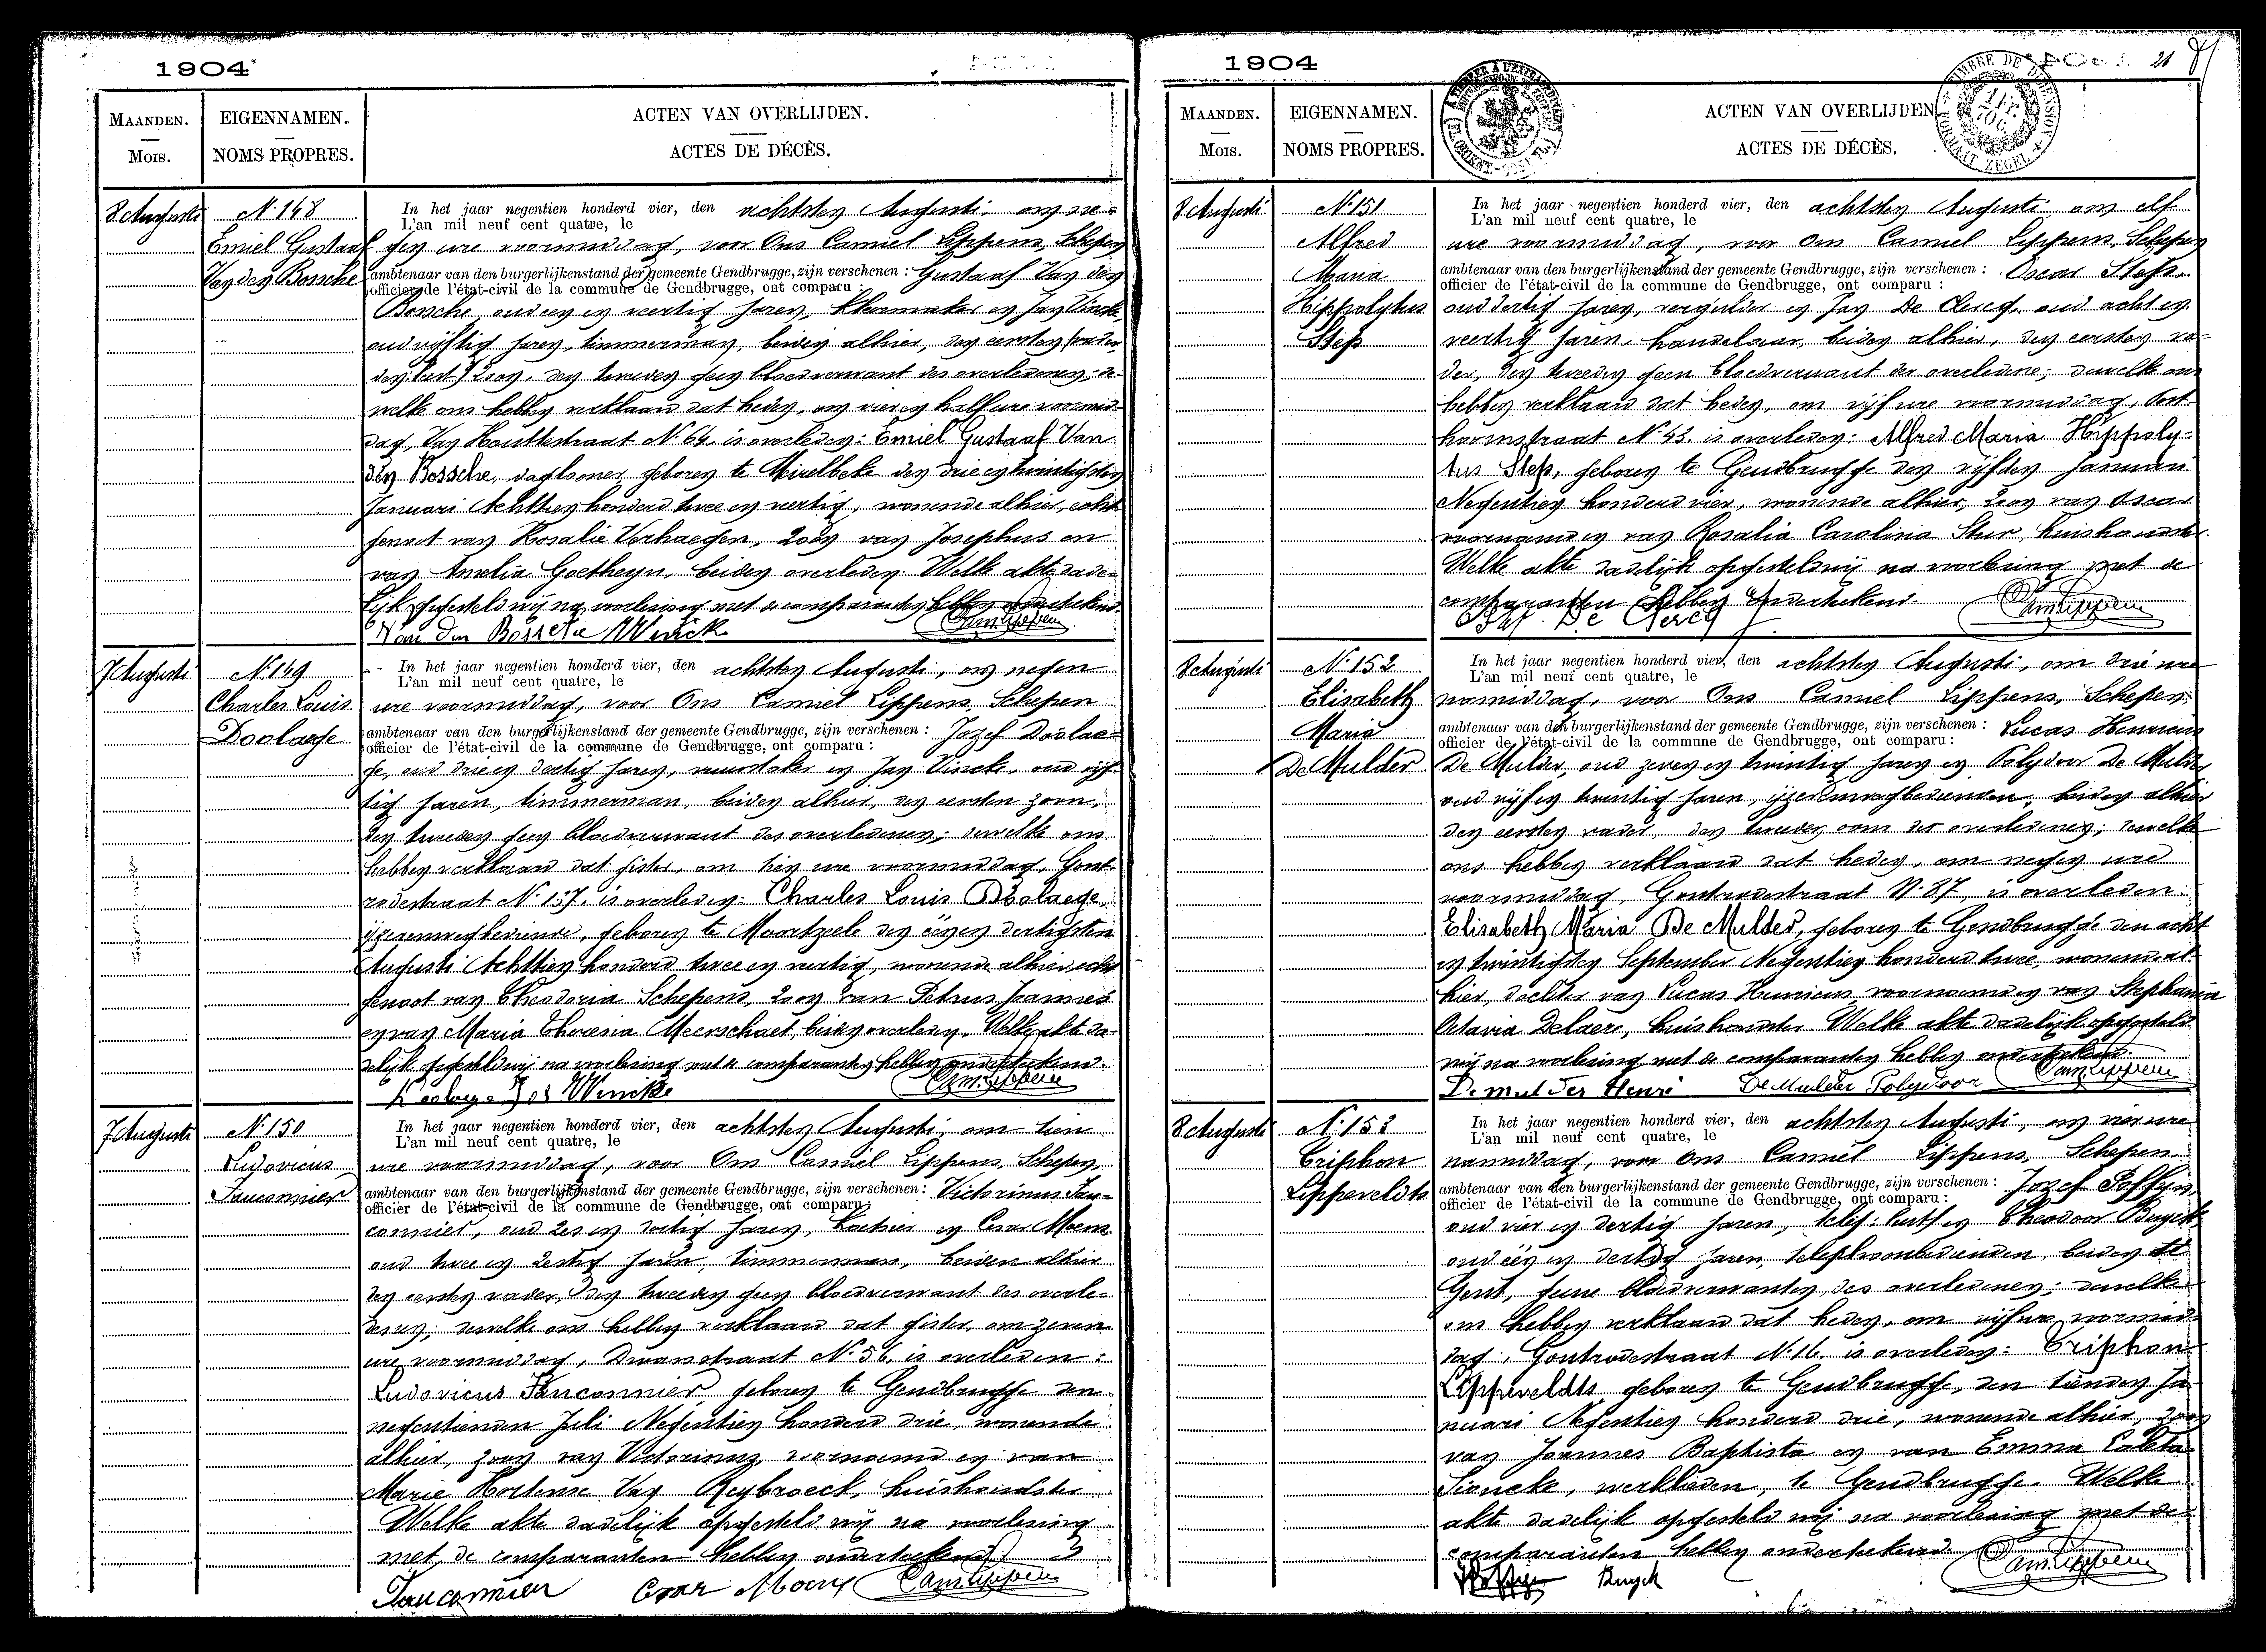 1904
MAANDEN.
Mois.
EIGENNAMEN.
NOMS PROPRES.
ACTEN VAN OVERLIJDEN.
ACTES DE DÉCÈS.
8 Augusti
N. 148
Emiel Gustaaf
Van den Bossche
In het jaar negentien honderd vier, den achtsten Augusti, om ne-
L'an mil neuf cent quatre, le
gen ure voormiddag, voor Ons Camiel Lippens, Schepen
ambtenaar van den burgerlijkenstand der gemeente Gendbrugge, zijn verschenen : Gustaaf Van den
officier de l'état-civil de la commune de Gendbrugge, ont comparu :
Bossche, oud een en veertig jaren, en Jan Vincke
oud vijftig jaren, timmerman, beiden alhier, den eersten
zoon, den tweeden geen bloedverwant des overledenen; de-
welke ons hebben verklaard dat heden, om vier en half ure voormid-
dag, Van Houttestraat N. 64, is overleden: Emiel Gustaaf Van
den Bossche, daglooner, geboren te Meirelbeke den drie en twintigsten
Januari Achttien honderd twee en veertig, wonende alhier, echt-
genoot van Rosalie Verhaegen, zoon van Josephus en
van Amelia Goetheyn, beiden overleden. Welke akte dade-
lijk opgesteld wij na voorlezing met de comparanten hebben onderteekend.
Van Den Bossche J Vincke Cam Lippens
7 Augusti
N. 149
Charles Louis
Doolaege
In het jaar negentien honderd vier, den achtsten Augusti, om negen
L'an mil neuf cent quatre, le
ure voormiddag, voor Ons Camiel Lippens, Schepen
ambtenaar van den burgerlijkenstand der gemeente Gendbrugge, zijn verschenen : Jozef Doolae-
officier de l'état-civil de la commune de Gendbrugge, ont comparu :
ge, oud drie en dertig jaren, en Jan Vincke, oud vijf-
tig jaren, timmerman, beiden alhier, den eersten zoon,
den tweeden geen bloedverwant des overledenen; dewelke ons
hebben verklaard dat gister, om tien ure voormiddag, Gont-
rodestraat N. 137, is overleden: Charles Louis Doolaege,
ijzerenwegbediende, geboren te Moortzeele den één en dertigsten
Augusti Achttien honderd twee en veertig, wonende alhier, echt-
genoot van Theodoria Schepens, zoon van Petrus Joannes
en van Maria Theresia Meerschaet, beiden overleden. Welke akte da-
delijk opgesteld wij na voorlezing met de comparanten hebben onderteekend.
Doolaege Jos Vincke Cam Lippens
7 Augusti
N. 150
Ludovicus
Fauconnier
In het jaar negentien honderd vier, den achtsten Augusti, om tien
L'an mil neuf cent quatre, le
ure voormiddag, voor Ons Camiel Lippens, Schepen,
ambtenaar van den burgerlijkenstand der gemeente Gendbrugge, zijn verschenen : Victorinus Fau-
officier de l'état-civil de la commune de Gendbrugge, ont comparu
connier, oud zes en dertig jaren, en Cesar Moens
oud twee en zestig jaren, timmerman, beiden alhier
den eersten vader, den tweeden geen bloedverwant des overle-
denen; dewelke ons hebben verklaard dat gister, om zeven
ure voormiddag, straat N. 56, is overleden:
Ludovicus Fauconnier, geboren te Gendbrugge den
negentienden Juli Negentien honderd drie, wonende
alhier, zoon van Victorinus, voornoemd en van
Marie Hortense Van Reybroeck, huishoudster
Welke akte dadelijk opgesteld wij na voorlezing
met de comparanten hebben onderteekend.
Fauconnier Cesar Moens Cam Lippens
1904
21
MAANDEN.
Mois.
EIGENNAMEN.
NOMS PROPRES.
ACTEN VAN OVERLIJDEN
ACTES DE DÉCÈS.
TIMBRE DE DIMENSION
FORMAAT ZEGEL
8 Augusti
N. 151
Alfred
Maria
Hippolytus
Steps
In het jaar negentien honderd vier, den achtsten Augusti, om elf
L'an mil neuf cent quatre, le
ure voormiddag, voor Ons Camiel Lippens, Schepen
ambtenaar van den burgerlijkenstand der gemeente Gendbrugge, zijn verschenen : Oscar Steps,
officier de l'état-civil de la commune de Gendbrugge, ont comparu :
oud dertig jaren, vergulder en Jan De Clercq, oud acht en
veertig jaren, handelaar, beiden alhier, den eersten va-
der, den tweeden geen bloedverwant der overledene; dewelke ons
hebben verklaard dat heden, om vijf ure voormiddag, Oost-
hoornstraat N. 43, is overleden: Alfred Maria Hippoly-
tus Steps, geboren te Gendbrugge den vijfden Januari
Negentien honderd vier, wonende alhier, zoon van Oscar
voornoemd en van Rosalia Carolina Stur, huishoudster.
Welke akte dadelijk opgesteld wij na voorlezing met de
comparanten hebben onderteekend.
De Clercq Cam Lippens
8 Augusti
N. 152
Elisabeth
Maria
De Mulder
In het jaar negentien honderd vier, den achtsten Augusti, om drie ure
L'an mil neuf cent quatre, le
namiddag, voor Ons Camiel Lippens, Schepen,
ambtenaar van den burgerlijkenstand der gemeente Gendbrugge, zijn verschenen : Lucas Henricus
officier de l'état-civil de la commune de Gendbrugge, ont comparu :
De Mulder, oud zeven en twintig jaren en Polydoor De Mulder
oud vijf en twintig jaren, ijzerenwegbedienden, beiden alhier
den eersten vader, den tweeden oom der overledenen; dewelke
ons hebben verklaard dat heden, om negen ure
voormiddag, Gontrodestraat N. 87, is overleden:
Elisabeth Maria De Mulder, geboren te Gendbrugge den acht
en twintigsten September Negentien honderd twee, wonende al-
hier, dochter van Lucas Henricus, voornoemd en van Stephania
Octavia Delaere, huishoudster. Welke akte dadelijk opgesteld
wij na voorlezing met de comparanten hebben onderteekend.
De mulder Henri De Mulder Polydoor Cam Lippens
8 Augusti
N. 153
Triphon
Lippeveldts
In het jaar negentien honderd vier, den achtsten Augusti, om vier ure
L'an mil neuf cent quatre, le
namiddag, voor Ons Camiel Lippens, Schepen
ambtenaar van den burgerlijkenstand der gemeente Gendbrugge, zijn verschenen : Jozef
officier de l'état-civil de la commune de Gendbrugge, ont comparu :
oud vier en dertig jaren, en Theodoor Buyck
oud één en dertig jaren, telephoonbedienden, beiden te
Gent, geene bloedverwanten des overledenen; dewelke
ons hebben verklaard dat heden, om vijf ure voormid-
dag, Gontrodestraat N. 16, is overleden: Triphon
Lippeveldts, geboren te Gendbrugge, den tienden Ja-
nuari Negentien honderd drie, wonende alhier, zoon
van Joannes Baptista en van Emma Coleta
werklieden, te Gendbrugge. Welke
akte dadelijk opgesteld wij na voorlezing met de
comparanten hebben onderteekend.
Buyck Cam Lippens